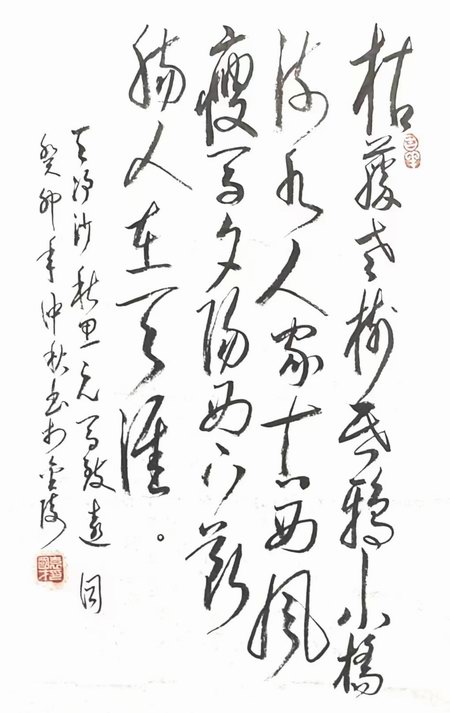 枯藤老树昏鸦小橋
流水人家古道西风
瘦马夕阳西下断
肠人在天涯。
天净沙 秋思 元 马致远 词
癸卯年仲秋书于金陵